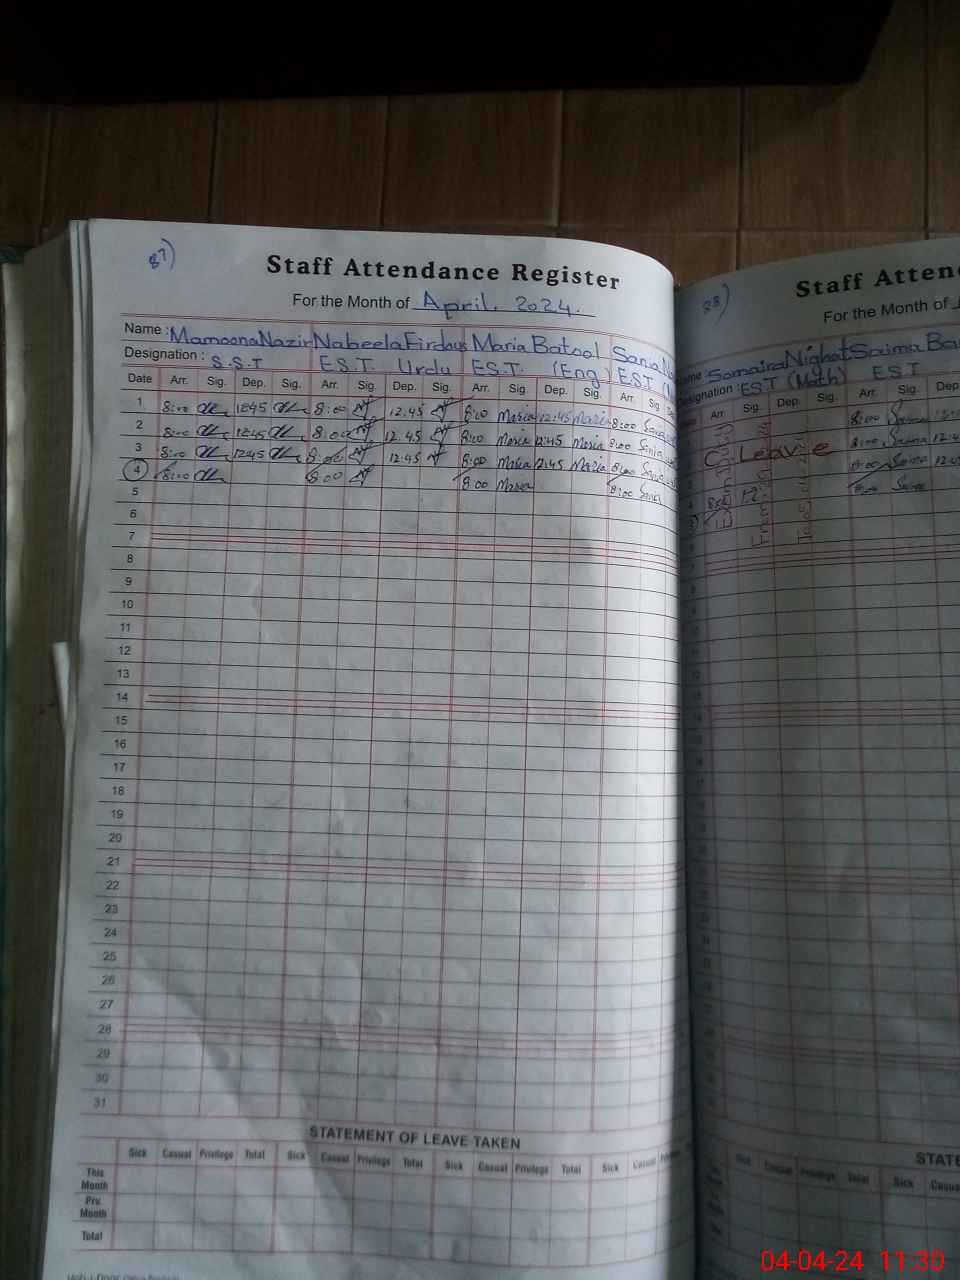 87)
Staff Attendance Register
For the Month of April. 2024.
Name : Mamoona Nazir Nabeela Firdaus Maria Batool Sania
Designation : S.S.T EST. Urdu EST. (Eng) EST
Date Arr. Sig. Dep. Sig. Arr. Sig. Dep. Sig. Arr. Sig. Dep. Sig. Arr. Sig.
1 8:00 12:45 8:00 12.45 8:00 Maria 12:45 Maria 8:00 Sania
2 8:00 12:45 8:00 12.45 8:00 Maria 12:45 Maria 8:00 Sania
3 8:00 12:45 8:00 12:45 8:00 Maria 12:45 Maria 8:00 Sania
4 8:00 8:00 8:00 Maria 8:00 Sania
5
6
7
8
9
10
11
12
13
14
15
16
17
18
19
20
21
22
23
24
25
26
27
28
29
30
31
STATEMENT OF LEAVE TAKEN
Sick Casual Privilege Total Sick Casual Privilege Total Sick Casual Privilege Total Sick Casual
This Month
Prv. Month
Total
88)
Staff Atten
For the Month of
Name : Somaira Nighat Saima
Designation : EST (Math) EST
Arr. Sig. Dep. Sig. Arr. Sig. Dep
8:00 Saima
C. Leave 8:00 Saima 12:4
8:00 Saima 12:4
8:00 Saima
Exam Duty
STATE
Sick Casual Privilege Total Sick Casua
04-04-24 11:30